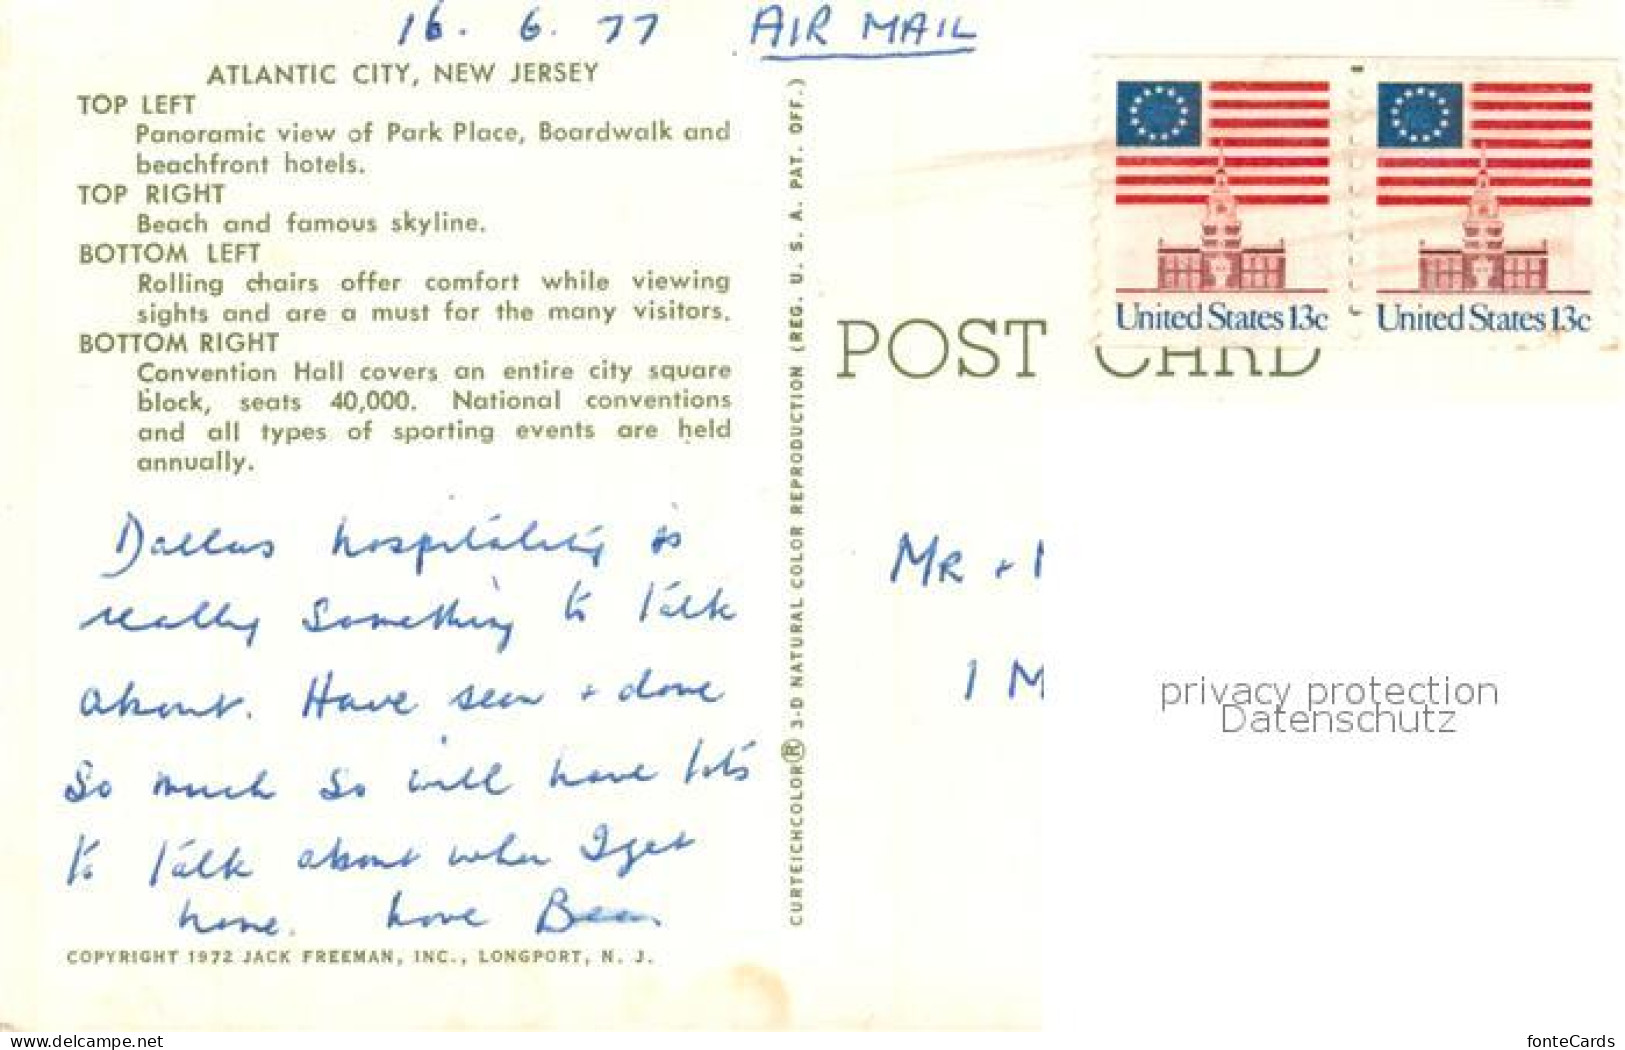 16. 6. 77 AIR MAIL
ATLANTIC CITY, NEW JERSEY
TOP LEFT
Panoramic view of Park Place, Boardwalk and
beachfront hotels.
TOP RIGHT
Beach and famous skyline.
BOTTOM LEFT
Rolling chairs offer comfort while viewing
sights and are a must for the many visitors.
BOTTOM RIGHT
Convention Hall covers an entire city square
block, seats 40,000. National conventions
and all types of sporting events are held
annually.
Dallas hospitality is
really something to talk
about. Have seen + done
so much so will have lots
to talk about when I get
home. Love
COPYRIGHT 1972 JACK FREEMAN, INC., LONGPORT, N. J.
CURTEICHCOLOR® 3-D NATURAL COLOR REPRODUCTION (REG. U. S. A. PAT. OFF.)
United States 13c
United States 13c
POST CARD
MR +
1 M
privacy protection
Datenschutz
www.delcampe.net
fonteCards